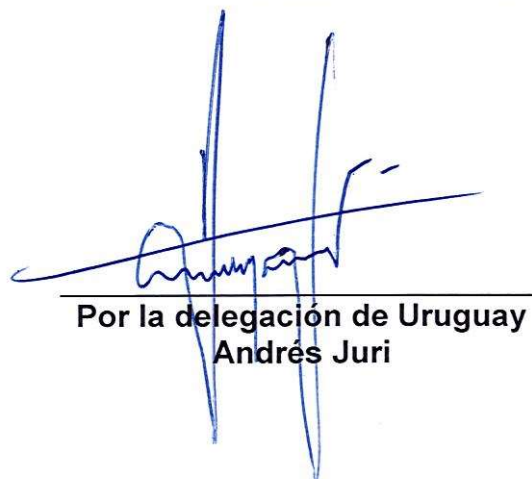 Por la delegación de Uruguay
Andrés Juri